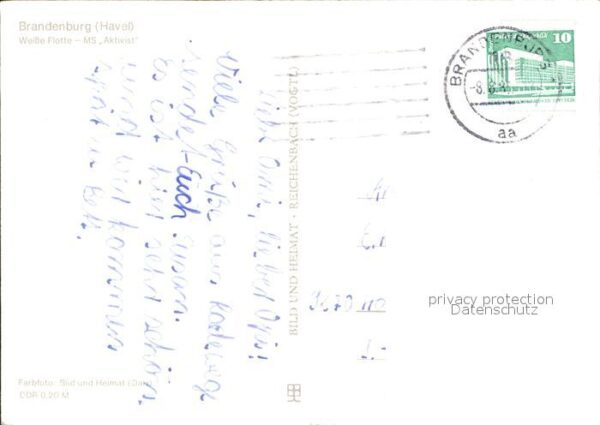 Brandenburg (Havel)
Weiße Flotte – MS „Aktivist"
10
BRANDENBURG
-8.8.
aa
Liebe Omi, lieber Opi!
Viele Grüße aus
sendet Euch Susann.
Es ist hier sehr schön
und wir kommen
spät in Bett.
BILD UND HEIMAT · REICHENBACH (VOGTL)
privacy protection
Datenschutz
Farbfoto: Bild und Heimat
DDR 0,20 M